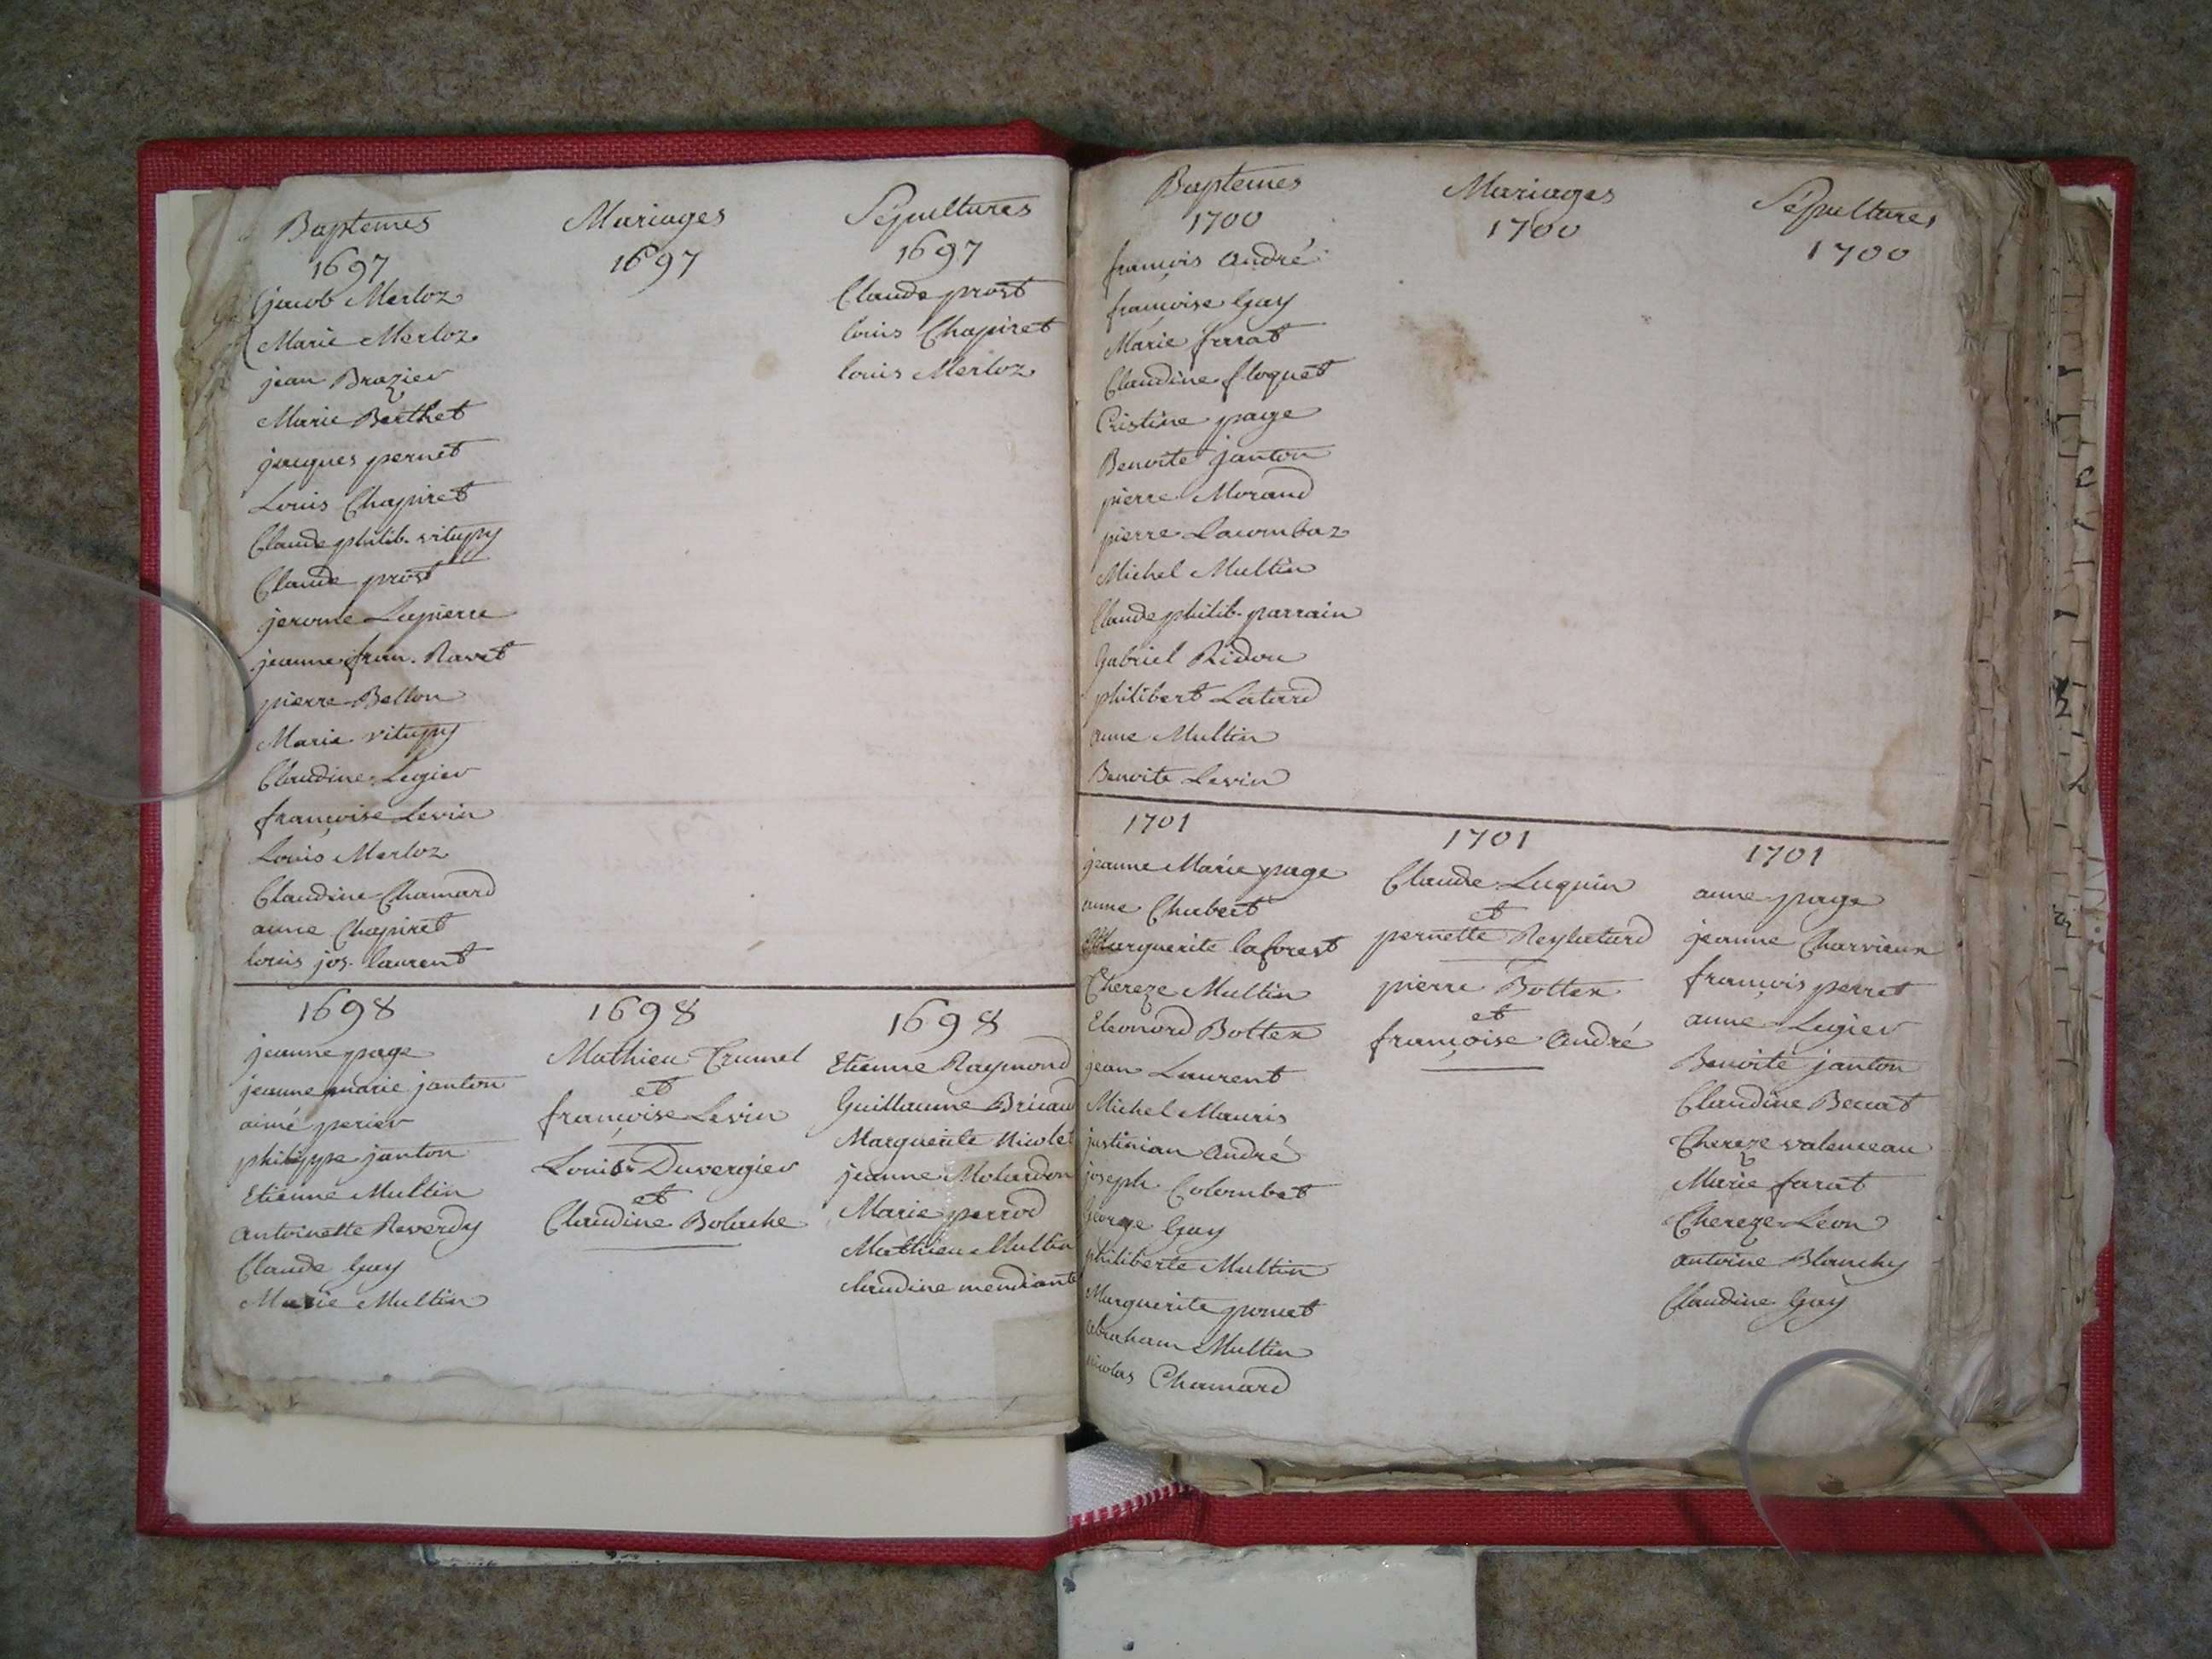 Baptemes
1697
jacob Merloz
Marie Merloz
jean Brazier
Marie Berthet
jacques pernet
Louis Chapiret
Claude philib. vitupy
Claude prost
jerome Lapierre
jeanne fran. Ravet
pierre Bellon
Marie vitupy
Claudine Legier
françoise Levin
Louis Merloz
Claudine Chamard
anne Chapiret
louis jos. laurent
Mariages
1697
Sépultures
1697
Claude prost
louis Chapiret
louis Merloz
1698
jeanne page
jeanne marie janton
aimé perier
philippe janton
Etienne Multin
antoinette Reverdy
Claude Guy
Marie Multin
1698
Mathieu Trumel
et
françoise Levin
Louis Duvergier
et
Claudine Boluche
1698
Etienne Raymond
Guillaume Bricaud
Marguerite Nicolet
jeanne Molardon
Marie perrod
Mathieu Multin
claudine mendiante
Baptemes
1700
françois andré
françoise Guy
Marie ferrat
Claudine floquet
Cristine page
Benoite janton
pierre Morand
pierre Lacombaz
Michel Multin
Claude philib. parrain
Gabriel Ridou
philibert Latard
anne Multin
Benoite Levin
Mariages
1700
Sépultures
1700
1701
jeanne Marie page
anne Chubert
Marguerite laforest
Thereze Multin
Eleonord Bottex
jean Laurent
Michel Mauris
justinian andré
joseph Colombet
George Guy
philiberte Multin
Marguerite
abraham Multin
nicolas Chamard
1701
Claude Luquin
et
pernette Reylatard
pierre Bottex
et
françoise andré
1701
anne page
jeanne Charvieux
françois perret
anne Legier
Benoite janton
Claudine Beccat
Thereze valenceau
Marie farat
Thereze Léon
antoine Blanchy
Claudine Guy